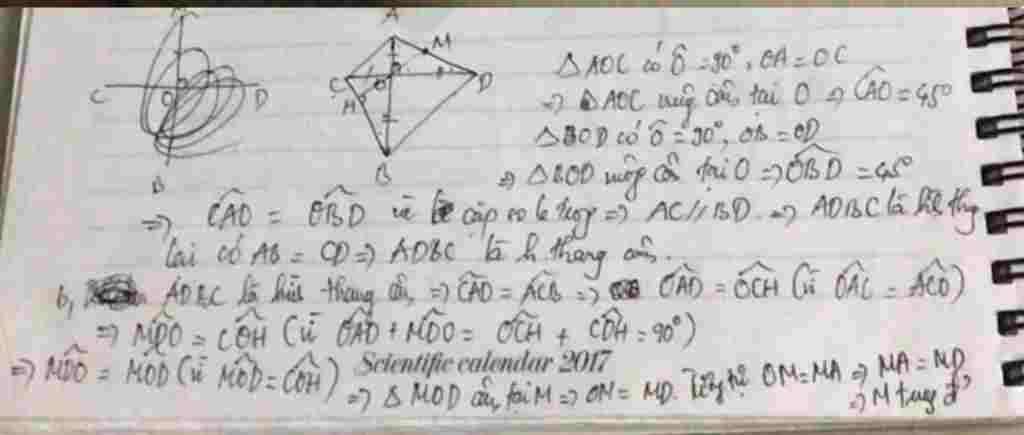 A
C
D
B
A
M
C
O
D
H
B
△AOC có Ô = 90°, OA = OC
=> △AOC vuông cân tại O => CÂO = 45°
△BOD có Ô = 90°, OB = OD
=> △BOD vuông cân tại O => OB̂D = 45°
=> CÂO = OB̂D vì cặp so le trong => AC // BD. => ADBC là hình thg
lại có AB = CD => ADBC là h thang cân.
b, ADBC là hình thang cân, => CÂD = AĈB => OÂD = OĈH (vì OÂC = AĈO)
=> MD̂O = CÔH (vì OÂD + MD̂O = OĈH + CÔH = 90°)
=> MD̂O = MÔD (vì MÔD = CÔH)
Scientific calendar 2017
=> △ MOD cân tại M => OM = MD. Tương tự OM = MA => MA = MD
=> M trung đ'